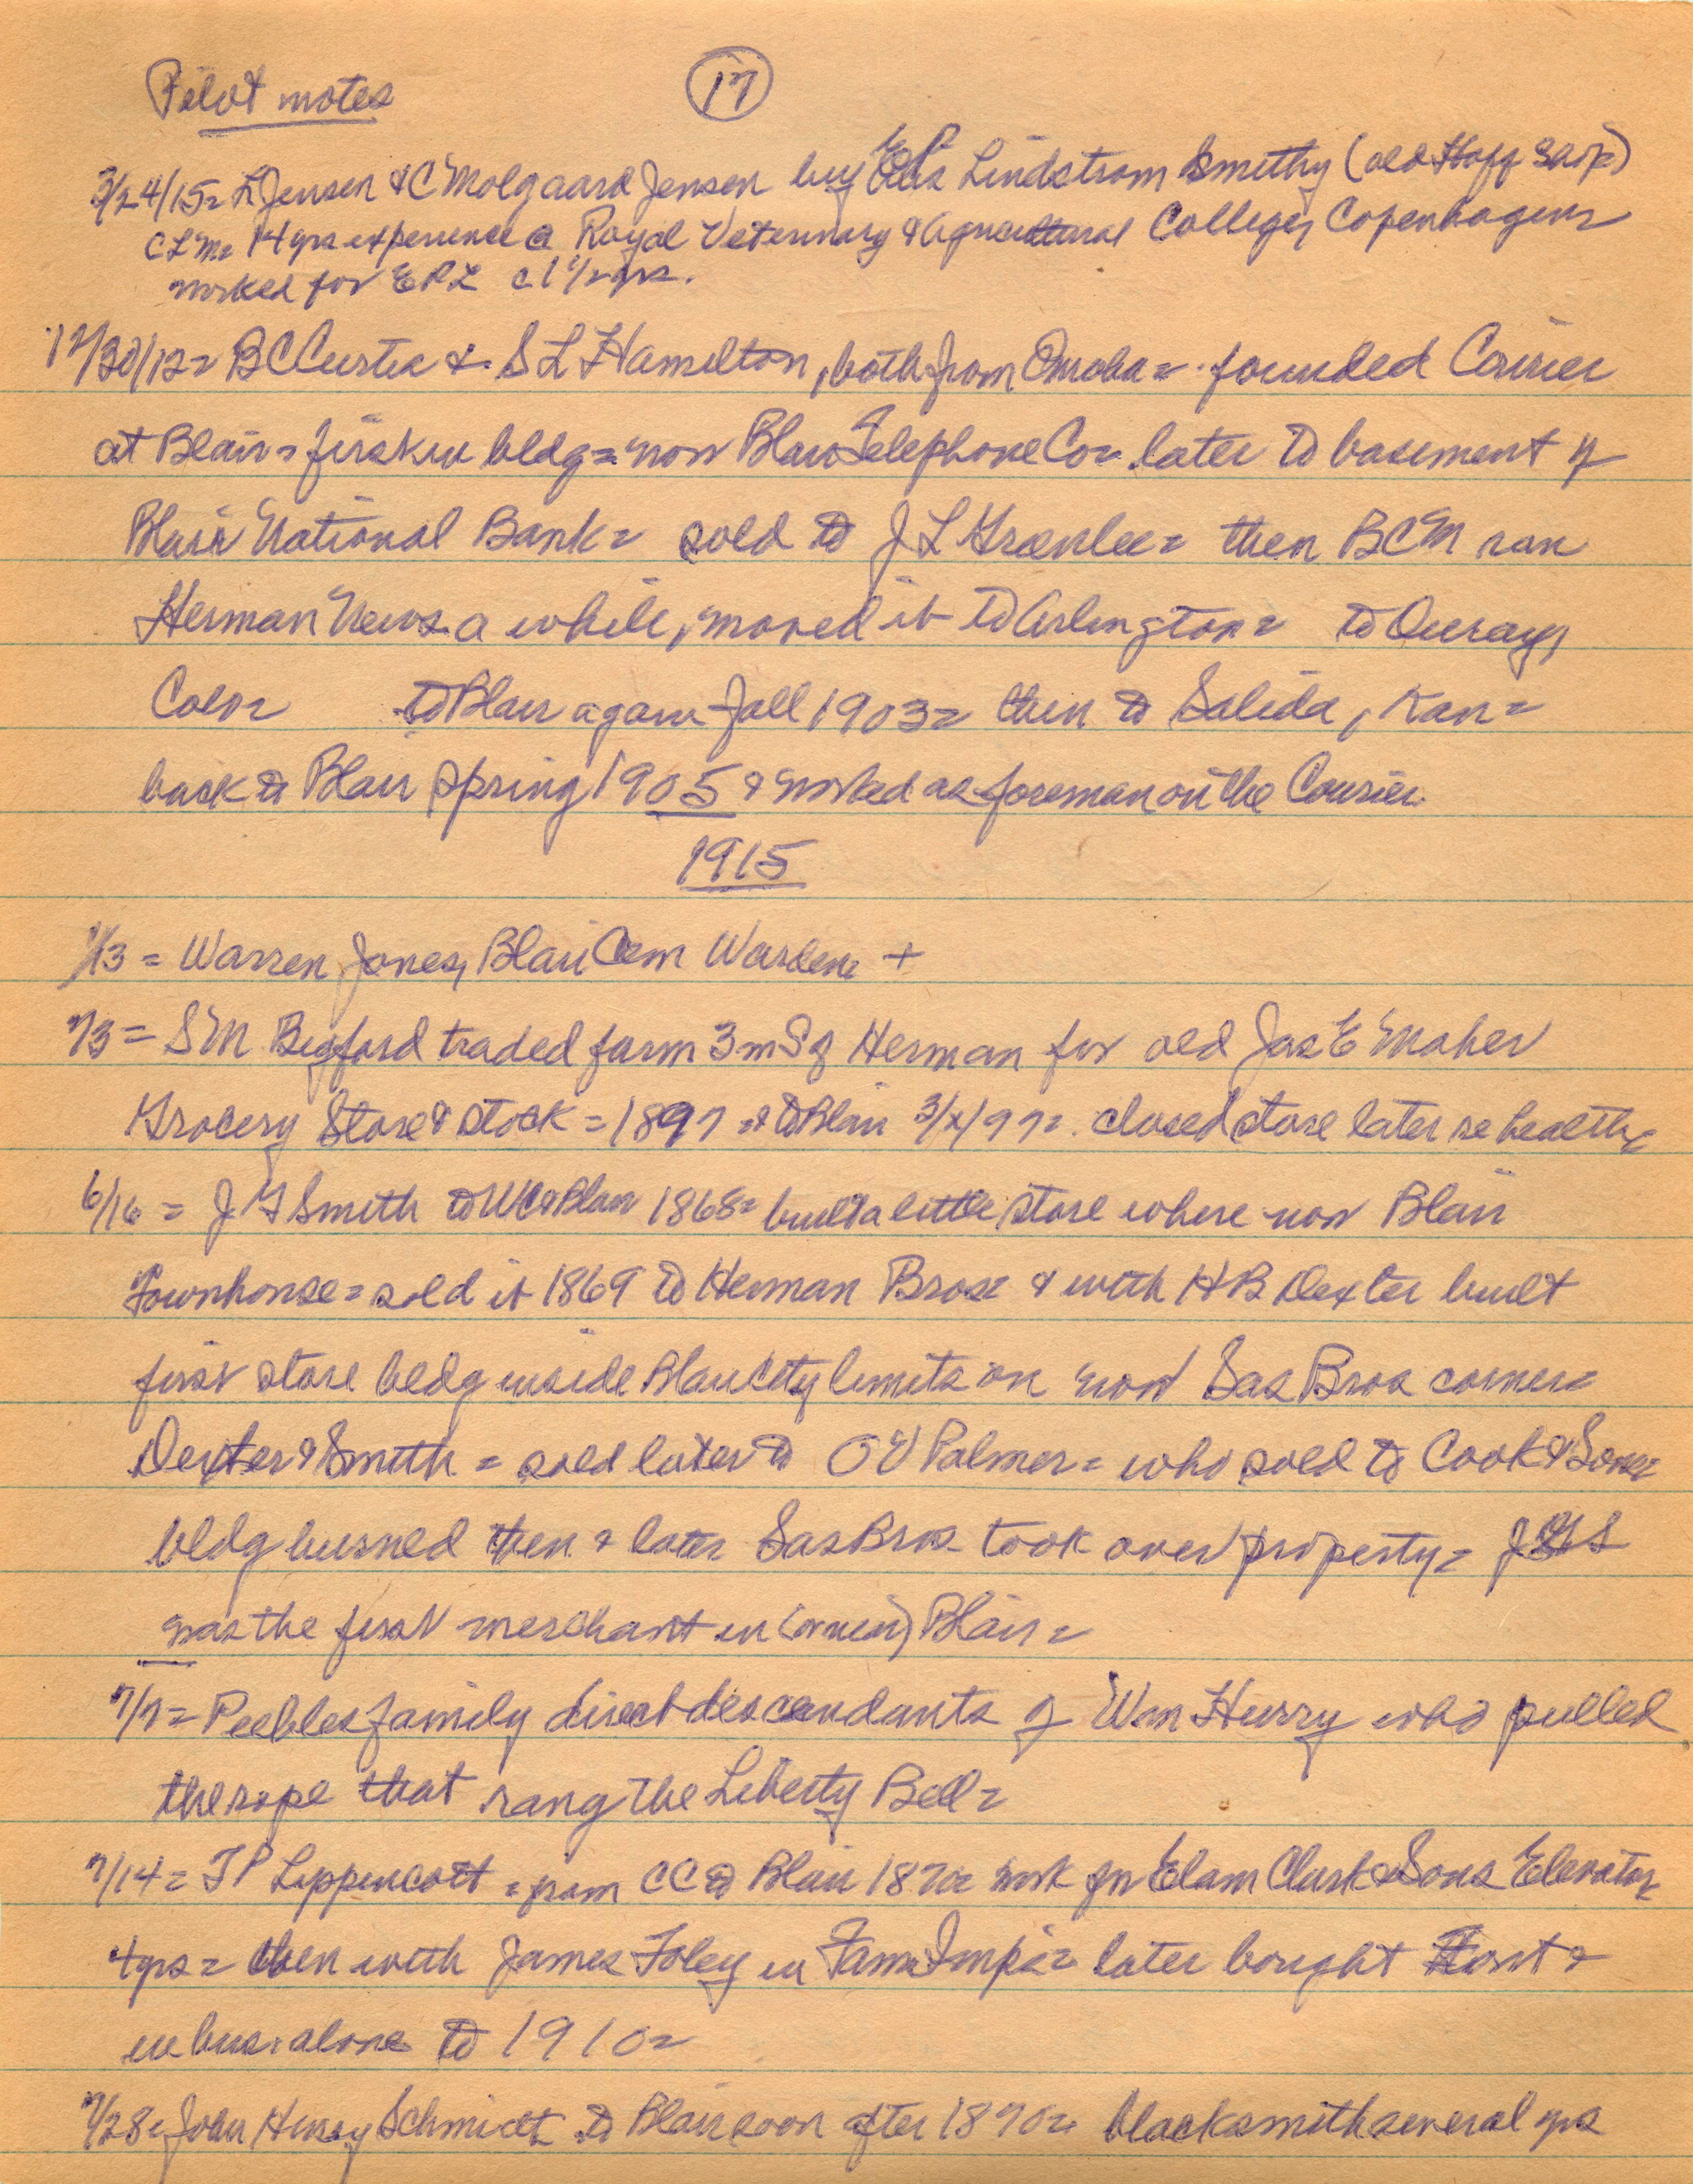 Pilot notes
17
3/24/15= L Jensen & C Molgaard Jensen buy E P Lindstrom Smithy (old Hoff
14 yrs experience @ Royal Veterinary & Agricultural College, Copenhagen=
worked for EPL c 1 1/2 yrs.
S L Hamilton, both from Omaha= founded Courier
at Blair= first in bldg= now Blair Telephone Co= later to basement of
Blair National Bank= sold to J L Greenlee= then BCM ran
Herman News a while, moved it to Arlington= to Ouray,
Colo= to Blair again fall 1903= then to Salida, Kan=
back to Blair spring 1905 & worked as foreman on the Courier.
1915
= Warren Jones, Blair Cem Warden= +
= S M Bigford traded farm 3 m S of Herman for old Jas E Maher
Grocery Store & stock = 1897 = to Blair 3/x/97= closed store later re health=
6/16 = J G Smith to WC & Blair 1868= built a little store where now Blair
Townhouse= sold it 1869 to Herman Bros= & with H B Dexter built
first store bldg inside Blair City limits on now Sas Bros corner=
Dexter & Smith = sold later to O V Palmer= who sold to Cook & Sons=
bldg burned then & later Sas Bros took over property= JGS
was the first merchant in (or near) Blair=
7/7= Peebles family direct descendants of Wm Hurry who pulled
the rope that rang the Liberty Bell=
7/14= T P Lippencott = from CC to Blair 1870= work for Elam Clark & Sons Elevator=
4 yrs= then with James Foley in Farm Imps= later bought F out &
in bus. alone to 1910=
7/28= John Henry Schmidt to Blair soon after 1870= blacksmith several yrs